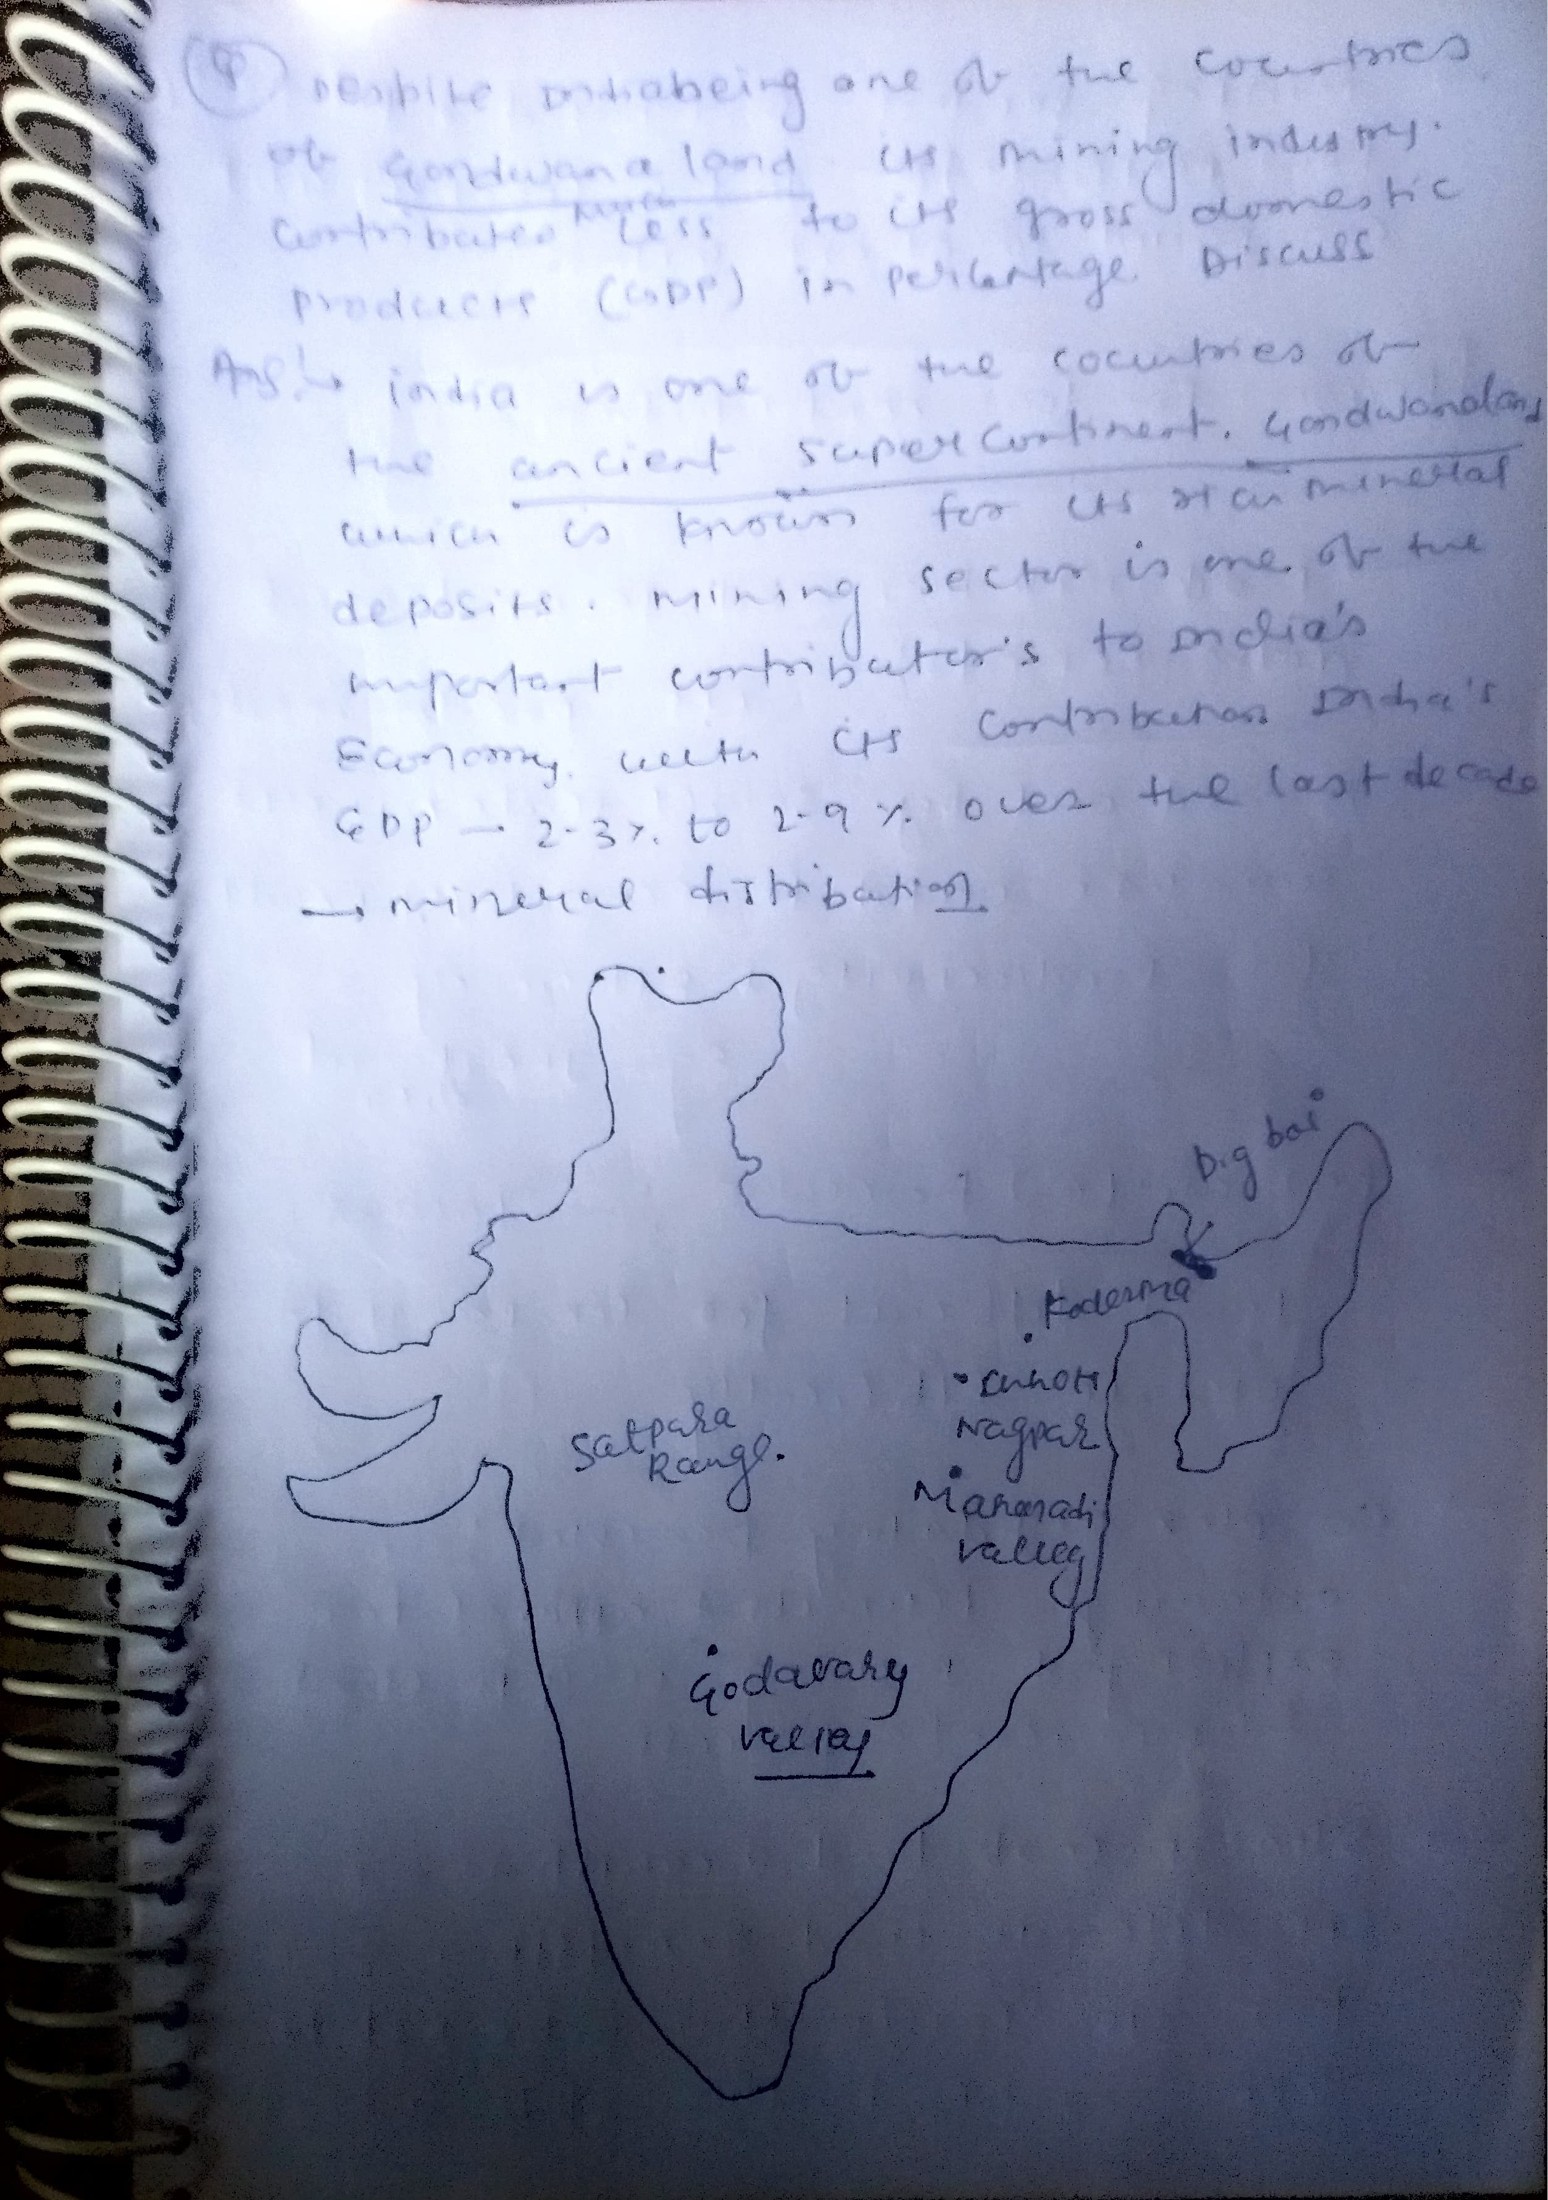 Q Despite India being one of the countries
of Gondwana land its mining industry.
Contributes much less to its gross domestic
products (GDP) in percentage. Discuss
Ans:→ india is one of the countries of
the ancient supercontinent. Gondwanaland
which is known for its rich mineral
deposits. Mining sector is one of the
important contributor's to India's
Economy. with its contribution India's
GDP - 2.3%. to 2.9%. over the last decade
→ mineral distribution
Digboi
Koderma
Chhota
Nagpur
Satpura
Range.
Mahanadi
valley
Godavary
valley